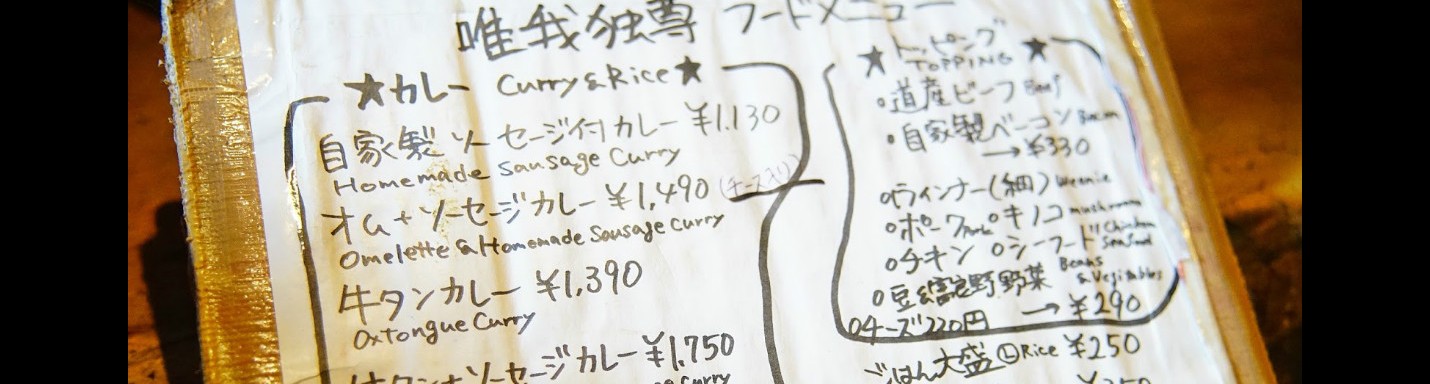 唯我独尊 フードメニュー
★カレー Curry & Rice★
自家製ソーセージ付カレー ¥1,130
Homemade Sausage Curry
オム+ソーセージカレー ¥1,490 (チーズ入り)
Omelette & Homemade Sausage Curry
牛タンカレー ¥1,390
Oxtongue Curry
牛タン+ソーセージカレー ¥1,750
Curry
★トッピング★
TOPPING
○道産ビーフ Beef
○自家製ベーコン Bacon
→¥330
○ウインナー(細) Weenie
○ポーク Pork ○キノコ mushroom
○チキン Chicken ○シーフード Seafood
○豆 Beans 富良野野菜 & Vegitables
→¥290
○チーズ220円
ごはん大盛 Ⓛ Rice ¥250